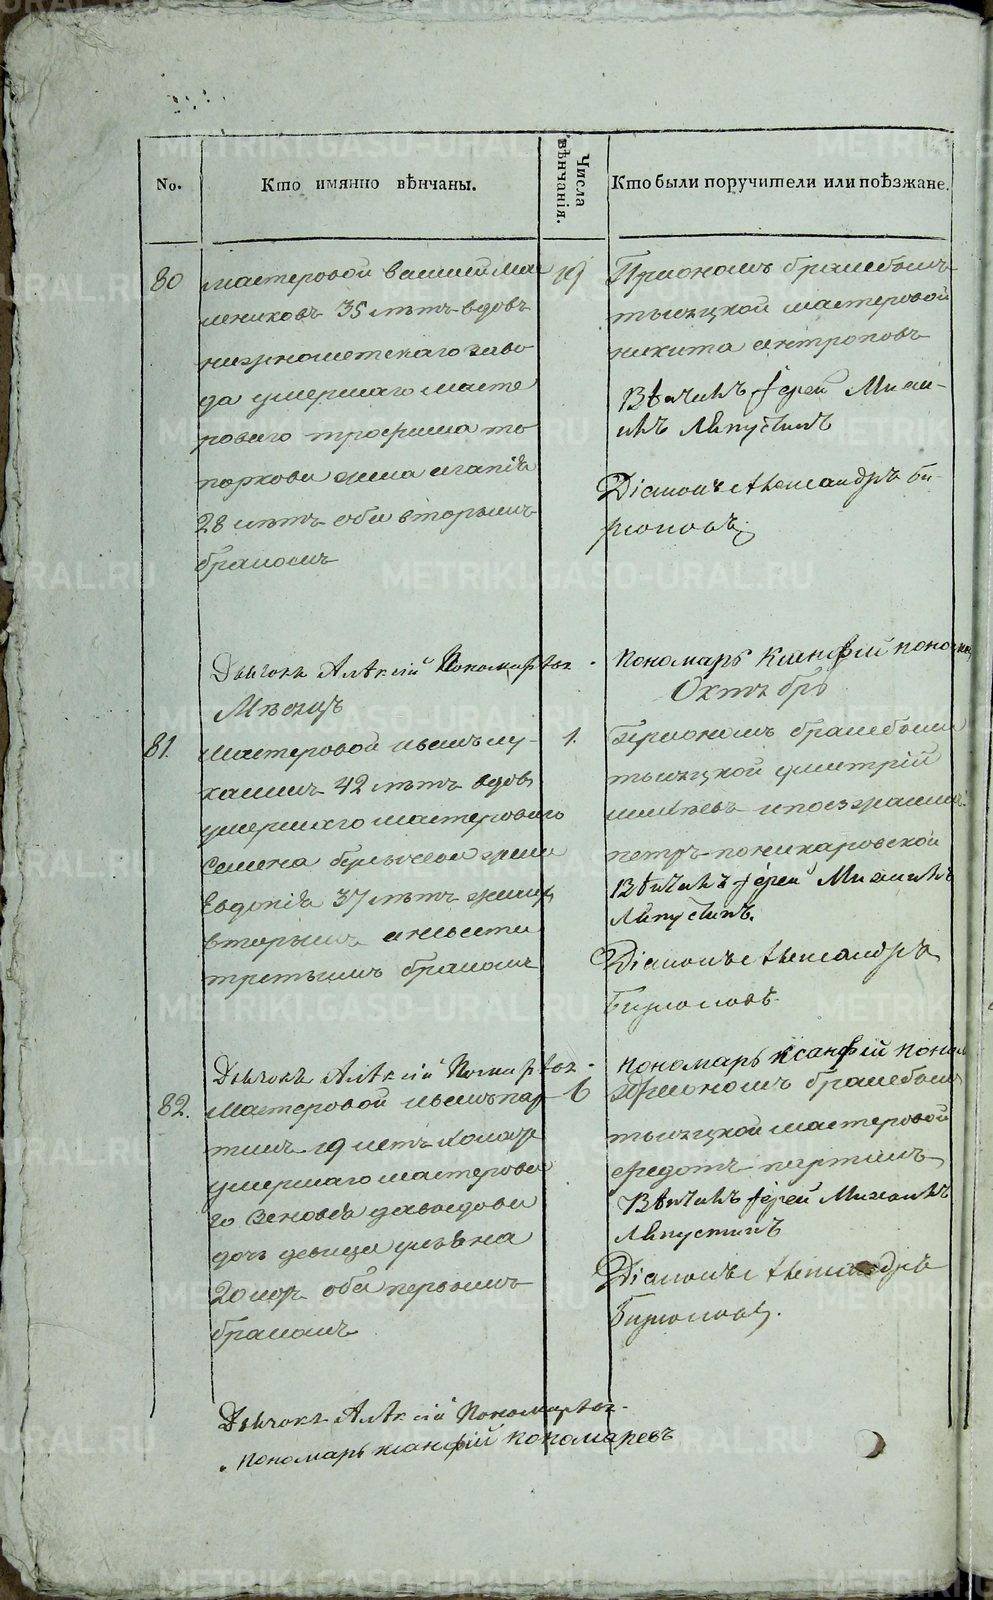 No.
Кто имянно вѣнчаны.
Числа вѣнчанія.
Кто были поручители или поѣзжане.
80
мастеровой василей ма
лениковъ 35 лѣтъ вдовъ
низнешетскаго заво
да умершаго масте
роваго трофима то
поркова жена агапіѣ
28 лѣтъ оба вторымъ
бракомъ
19
При ономъ браке былъ
тысяцкой мастеровой
никита антроповъ
Вѣнчалъ Іерей Михаи-
илъ Ляпустинъ
Діаконъ Александръ Би-
рюковъ
Дьячокъ Алѣксій Пономарѣвъ
Пономарь Ксанфій поно
Мѣсецъ
Октябрь
81.
мастеровой иванъ лу-
канин 42 лѣтъ вдовъ
умершаго мастероваго
семена жена
Евдокіѣ 37 лѣтъ жених
вторымъ а невеста
третьимъ бракомъ
1.
При ономъ браке были
тысяцкой дмитрій
и поезжанин
петръ
Вѣнчалъ Іерей Михаилъ
Ляпустинъ.
Діаконъ Александръ
Бирюковъ
Дьячокъ Алѣксій Пономарѣвъ
пономарь ксанфій поном
82.
мастеровой иванъ пар
тинъ 19 летъ холост
умершаго мастерова
го Зеновѣѣ давыдова
дочь девица ульяна
20 лѣт оба первымъ
бракомъ
6
При ономъ браке былъ
тысяцкой мастеровой
федотъ партинъ
Вѣнчалъ Іерей Михаилъ
Ляпустинъ
Діаконъ Александръ
Бирюковъ.
Дьячокъ Алѣксій Пономарѣвъ
пономарь ксанфій пономаревъ
METRIKI.GASO-URAL.RU